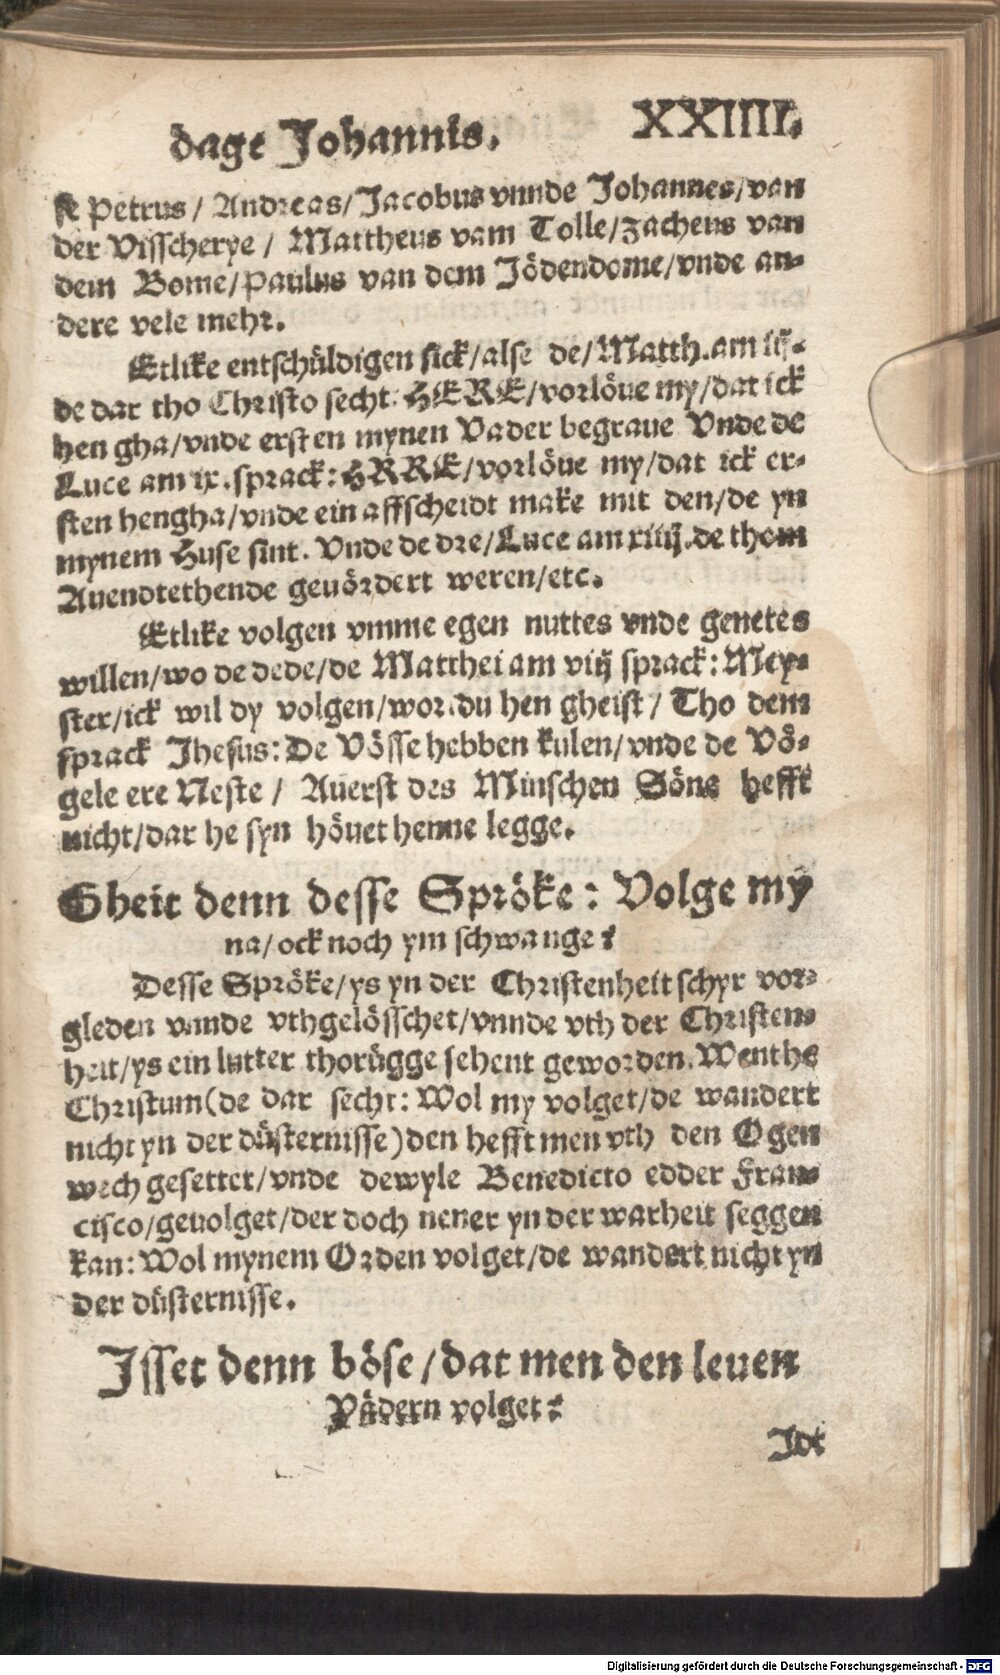 dage Johannis. XXIIII.
se Petrus/ Andreas/Jacobus vnnde Johannes/van
der Visscherye / Mattheus vam Tolle/Zacheus van
dem Bome/Paulus van dem Jödendome/vnde an-
dere vele mehr.
Etlike entschüldigen sick/alse de/Matth.am iij-
de dar tho Christo secht: HERE/vorlöue my/dat ick
hen gha/vnde ersten mynen Vader begraue Vnde de
Luce am ix.sprack: HRRE/vorlöue my/dat ick er-
sten hengha/vnde ein affscheidt make mit den/de yn
mynem Huse sint. Vnde de dre/Luce am xiiij.de thom
Auendtethende geuördert weren/etc.
Etlike volgen vmme egen nuttes vnde genetes
willen/wo de dede/de Matthei am viij sprack: Mey-
ster/ick wil dy volgen/wor du hen gheist/ Tho dem
sprack Jhesus: De Vösse hebben kulen/vnde de Vö-
gele ere Neste / Auerst des Minschen Söne hefft
nicht/dar he syn höuet henne legge.
Gheit denn desse Spröke: Volge my
na/ock noch ym schwange?
Desse Spröke/ys yn der Christenheit schyr vor-
gleden vnnde vthgelösschet/vnnde vth der Christen-
heit/ys ein lutter thorügge sehent geworden. Wenthe
Christum(de dar secht: Wol my volget/de wandert
nicht yn der düsternisse)den hefft men vth den Ogen
wech gesettet/vnde dewyle Benedicto edder Fran-
cisco/geuolget/der doch nener yn der warheit seggen
kan: Wol mynem Orden volget/de wandert nicht yn
der düsternisse.
Jsset denn böse/dat men den leuen
Vädern volget?
Jdt
Digitalisierung gefördert durch die Deutsche Forschungsgemeinschaft - DFG